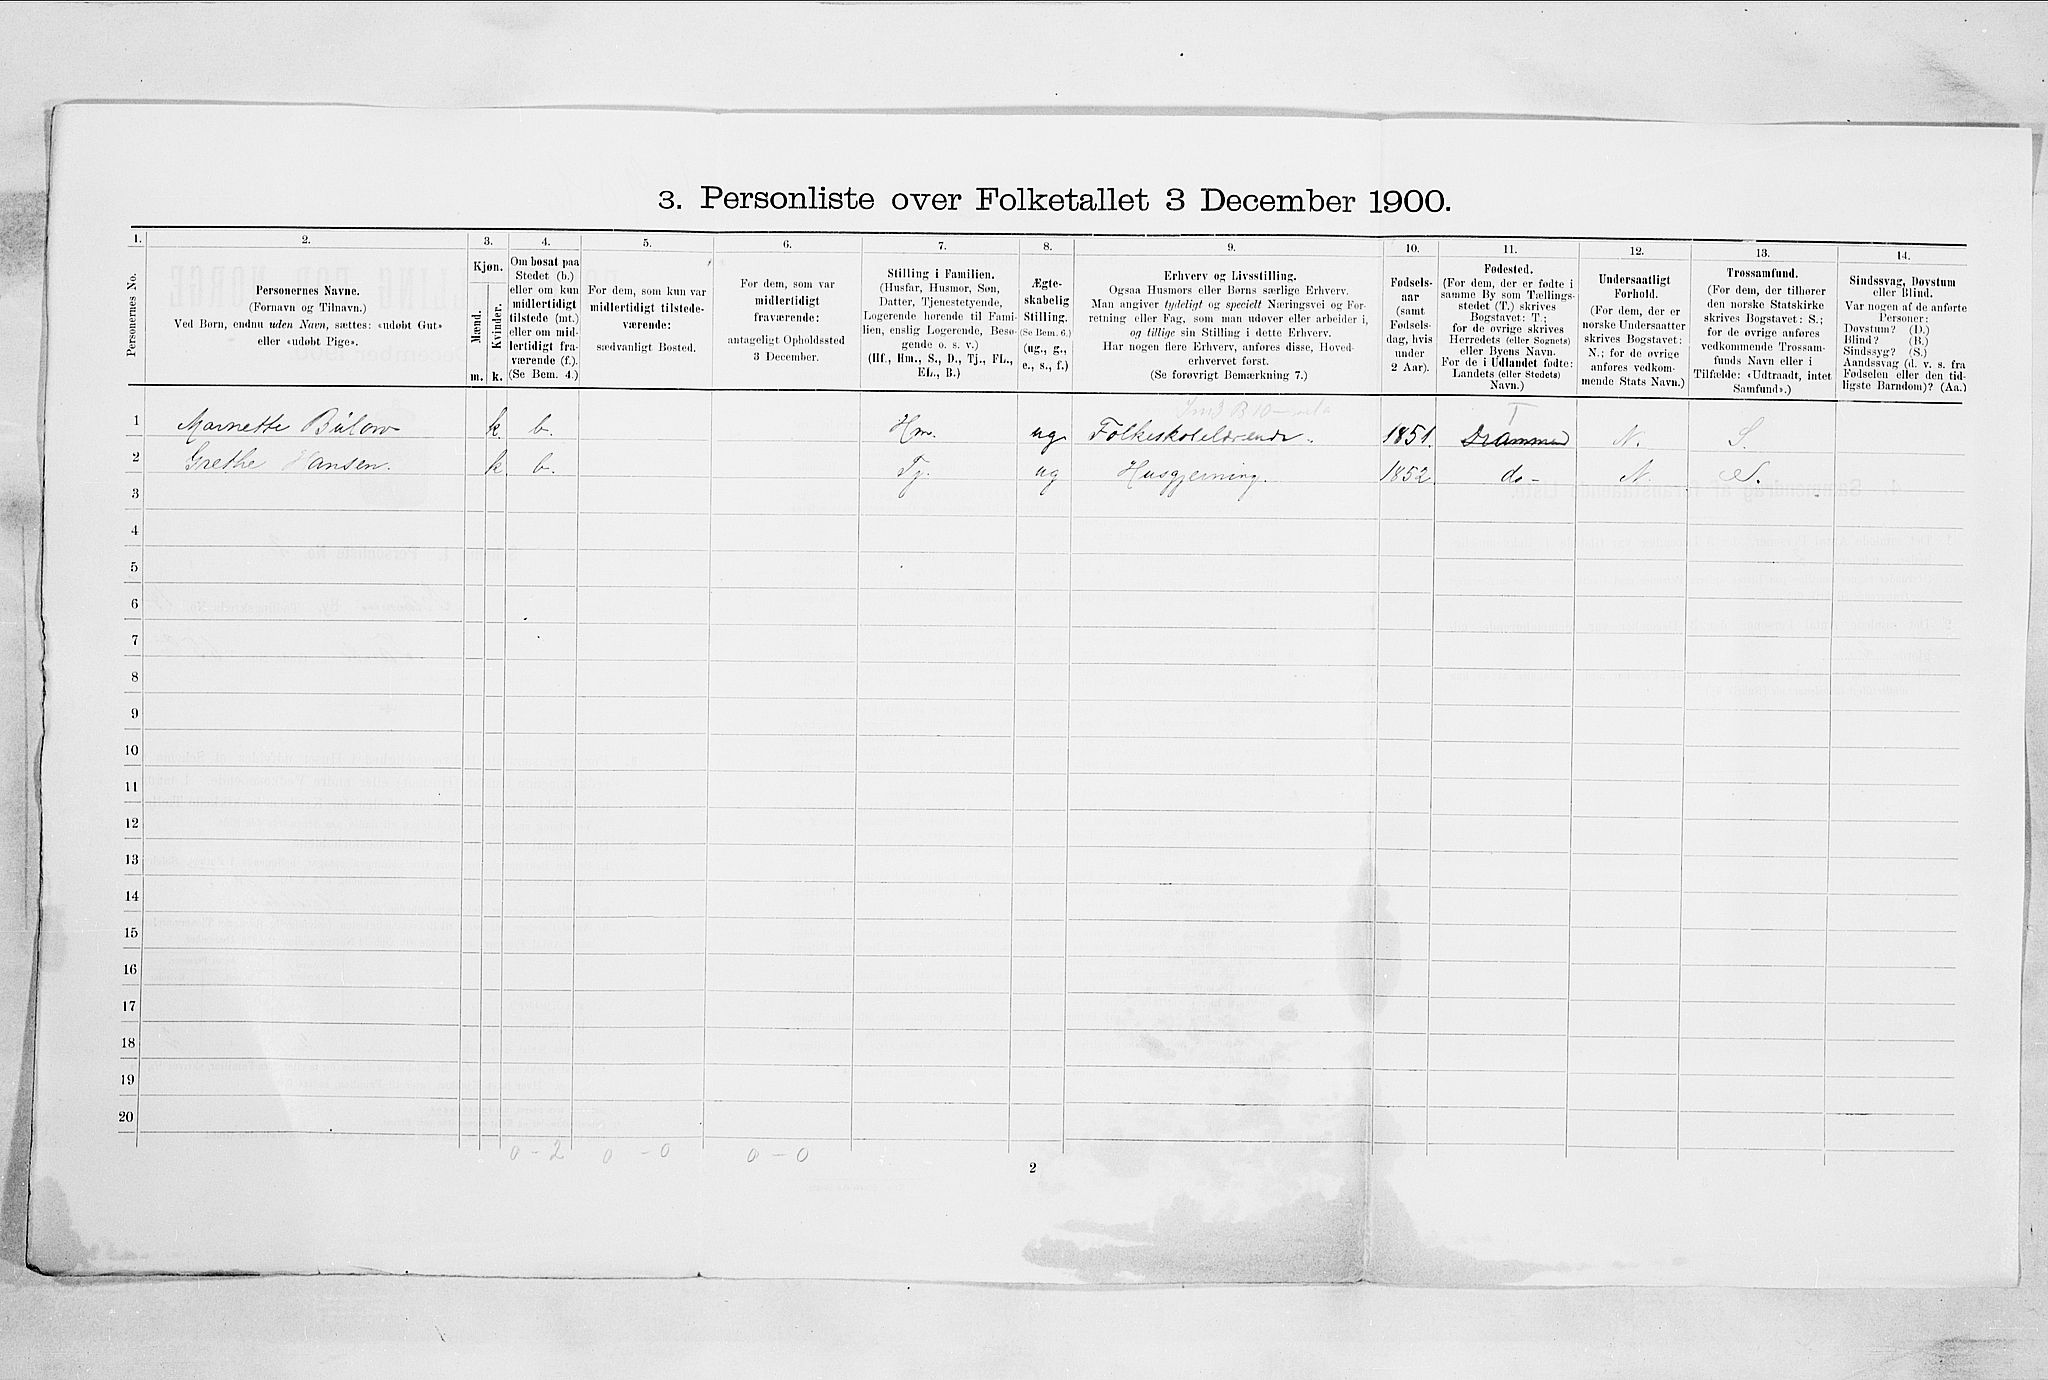 3. Personliste over Folketallet 3 December 1900.
1. 2. 3. 4. 5. 6. 7. 8. 9. 10. 11. 12. 13. 14.
Personernes No.
Personernes Navne.
(Fornavn og Tilnavn.)
Ved Børn, endnu uden Navn, sættes: «udøbt Gut»
eller «udøbt Pige».
Kjøn.
Mænd.
Kvinder.
m. k.
Om bosat paa
Stedet (b.)
eller om kun
midlertidigt
tilstede (mt.)
eller om mid-
lertidigt fra-
værende (f.)
(Se Bem. 4.)
For dem, som kun var
midlertidigt tilstede-
værende:
sædvanligt Bosted.
For dem, som var
midlertidigt
fraværende:
antageligt Opholdssted
3 December.
Stilling i Familien.
(Husfar, Husmor, Søn,
Datter, Tjenestetyende,
Logerende hørende til Fami-
lien, enslig Logerende, Besø-
gende o. s. v.)
(Hf., Hm., S., D., Tj., FL.,
EL., B.)
Ægte-
skabelig
Stilling.
(Se Bem. 6.)
(ug., g.,
e., s., f.)
Erhverv og Livsstilling.
Ogsaa Husmors eller Børns særlige Erhverv.
Man angiver tydeligt og specielt Næringsvei og For-
retning eller Fag, som man udøver eller arbeider i,
og tillige sin Stilling i dette Erhverv.
Har nogen flere Erhverv, anføres disse, Hoved-
erhvervet først.
(Se forøvrigt Bemærkning 7.)
Fødsels-
aar
(samt
Fødsels-
dag, hvis
under
2 Aar).
Fødested.
(For dem, der er fødte i
samme By som Tællings-
stedet (T.) skrives
Bogstavet: T.;
for de øvrige skrives
Herredets (eller Sognets)
eller Byens Navn.
For de i Udlandet fødte:
Landets (eller Stedets)
Navn.)
Undersaatligt
Forhold.
(For dem, der er
norske Undersaatter
skrives Bogstavet:
N.; for de øvrige
anføres vedkom-
mende Stats Navn.)
Trossamfund.
(For dem, der tilhører
den norske Statskirke
skrives Bogstavet: S.;
for de øvrige anføres
vedkommende Trossam-
funds Navn eller i
Tilfælde: «Udtraadt, intet
Samfund».)
Sindssvag, Døvstum
eller Blind.
Var nogen af de anførte
Personer:
Døvstum? (D.)
Blind? (B.)
Sindssyg? (S.)
Aandssvag (d. v. s. fra
Fødselen eller den tid-
ligste Barndom)? (Aa.)
B 10 T
1 Marnette Bülow k. b. Hm. ug Folkeskolelærende. 1851. Drammen N. S.
2 Grethe Hansen. k b. Tj. ug Husgjerning. 1852 do- N. S.
3
4
5
6
7
8
9
10
11
12
13
14
15
16
17
18
19
20
0 - 2 0 - 0 0 - 0
2